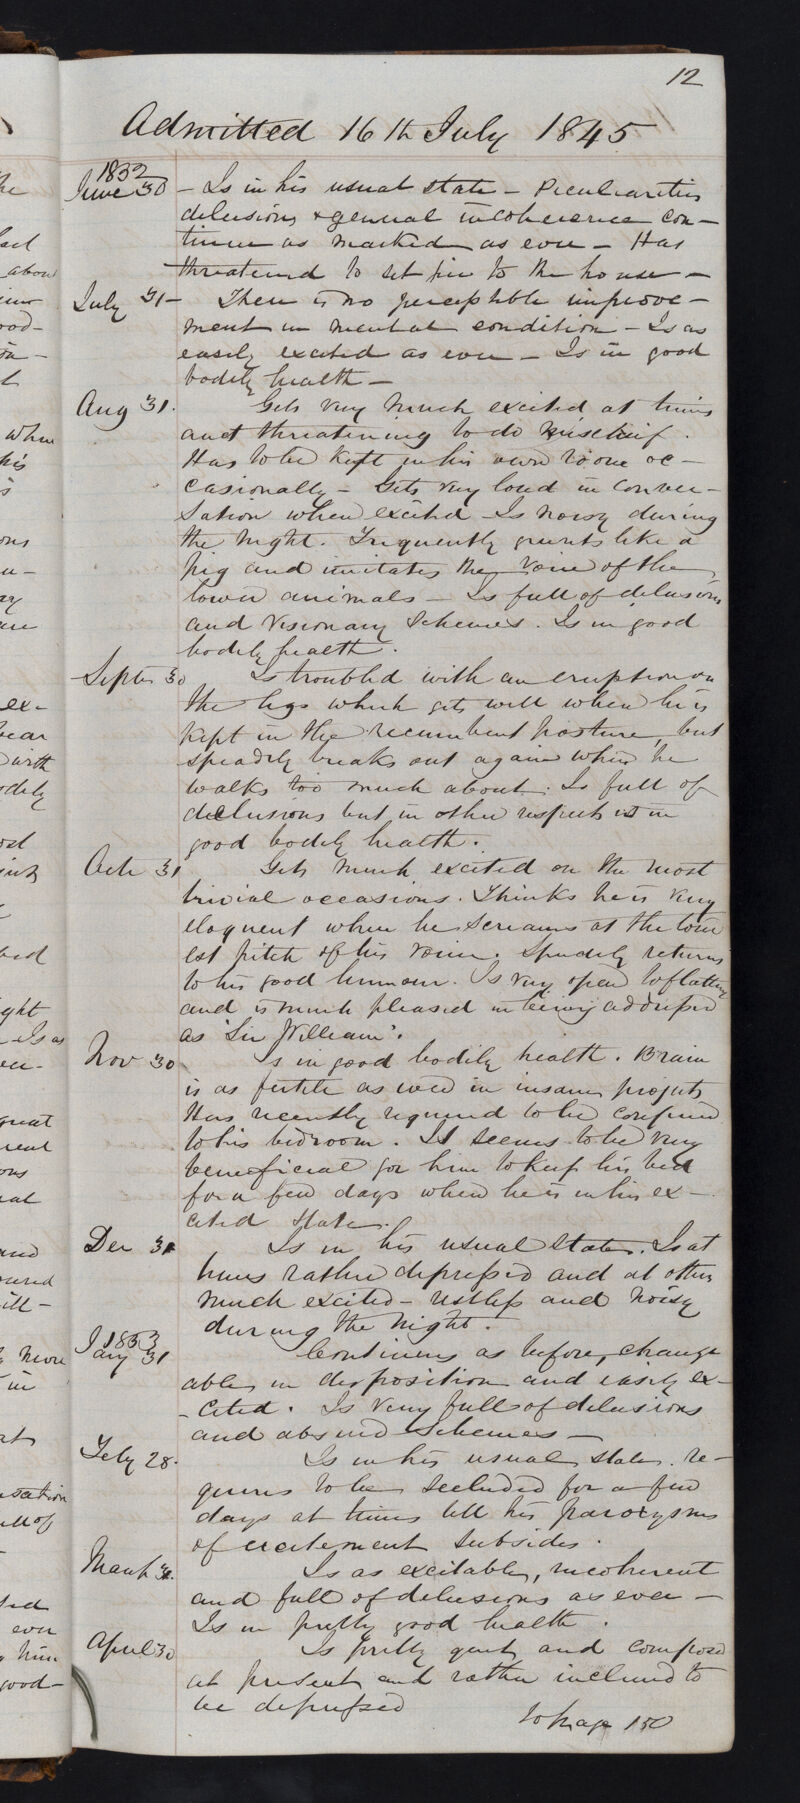 12
Admitted 16th July 1845
1852
June 30 - Is in his usual state - Peculiarities
delusions & general incoherence con-
tinue as marked as ever - Has
threatened to set fire to the house -
July 31 - There is no perceptible improve-
ment in mental condition - Is as
easily excited as ever - Is in good
bodily health -
Aug 31. Gets very much excited at times
and threatening to do mischief.
Has to be kept in his own room oc-
casionally - Gets very loud in conver-
sation when excited - Is noisy during
the night. Frequently grunts like a
pig and imitates the voice of the
lower animals - Is full of delusions
and visionary schemes. Is in good
bodily health.
Septr 30 Is troubled with an eruption on
the legs which gets well when he is
kept in the recumbent posture, but
speedily breaks out again when he
walks too much about. Is full of
delusions but in other respects is in
good bodily health.
Octr 31 Gets much excited on the most
trivial occasions. Thinks he is very
eloquent when he screams at the loud
est pitch of his voice. Speedily returns
to his good humour. Is very open to flattery
and is much pleased in being addressed
as "Sir William".
Nov 30 Is in good bodily health. Brain
is as fertile as ever in insane projects
Has recently required to be confined
to his bedroom. It seems to be very
beneficial for him to keep his bed
for a few days when he is in his ex-
cited state.
Dec 31 Is in his usual state. Is at
times rather depressed and at others
much excited - restless and noisy
during the night.
1853
Jany 31 Continues as before, change
able in disposition and easily ex-
-cited. Is very full of delusions
and absurd schemes -
Feby 28. Is in his usual state. re-
quires to be secluded for a few
days at times till his paroxysms
of excitement subsides.
March 31. Is as excitable, incoherent
and full of delusions as ever -
Is in pretty good health.
April 30 Is pretty quiet and composed
at present and rather inclined to
be depressed
to page 150